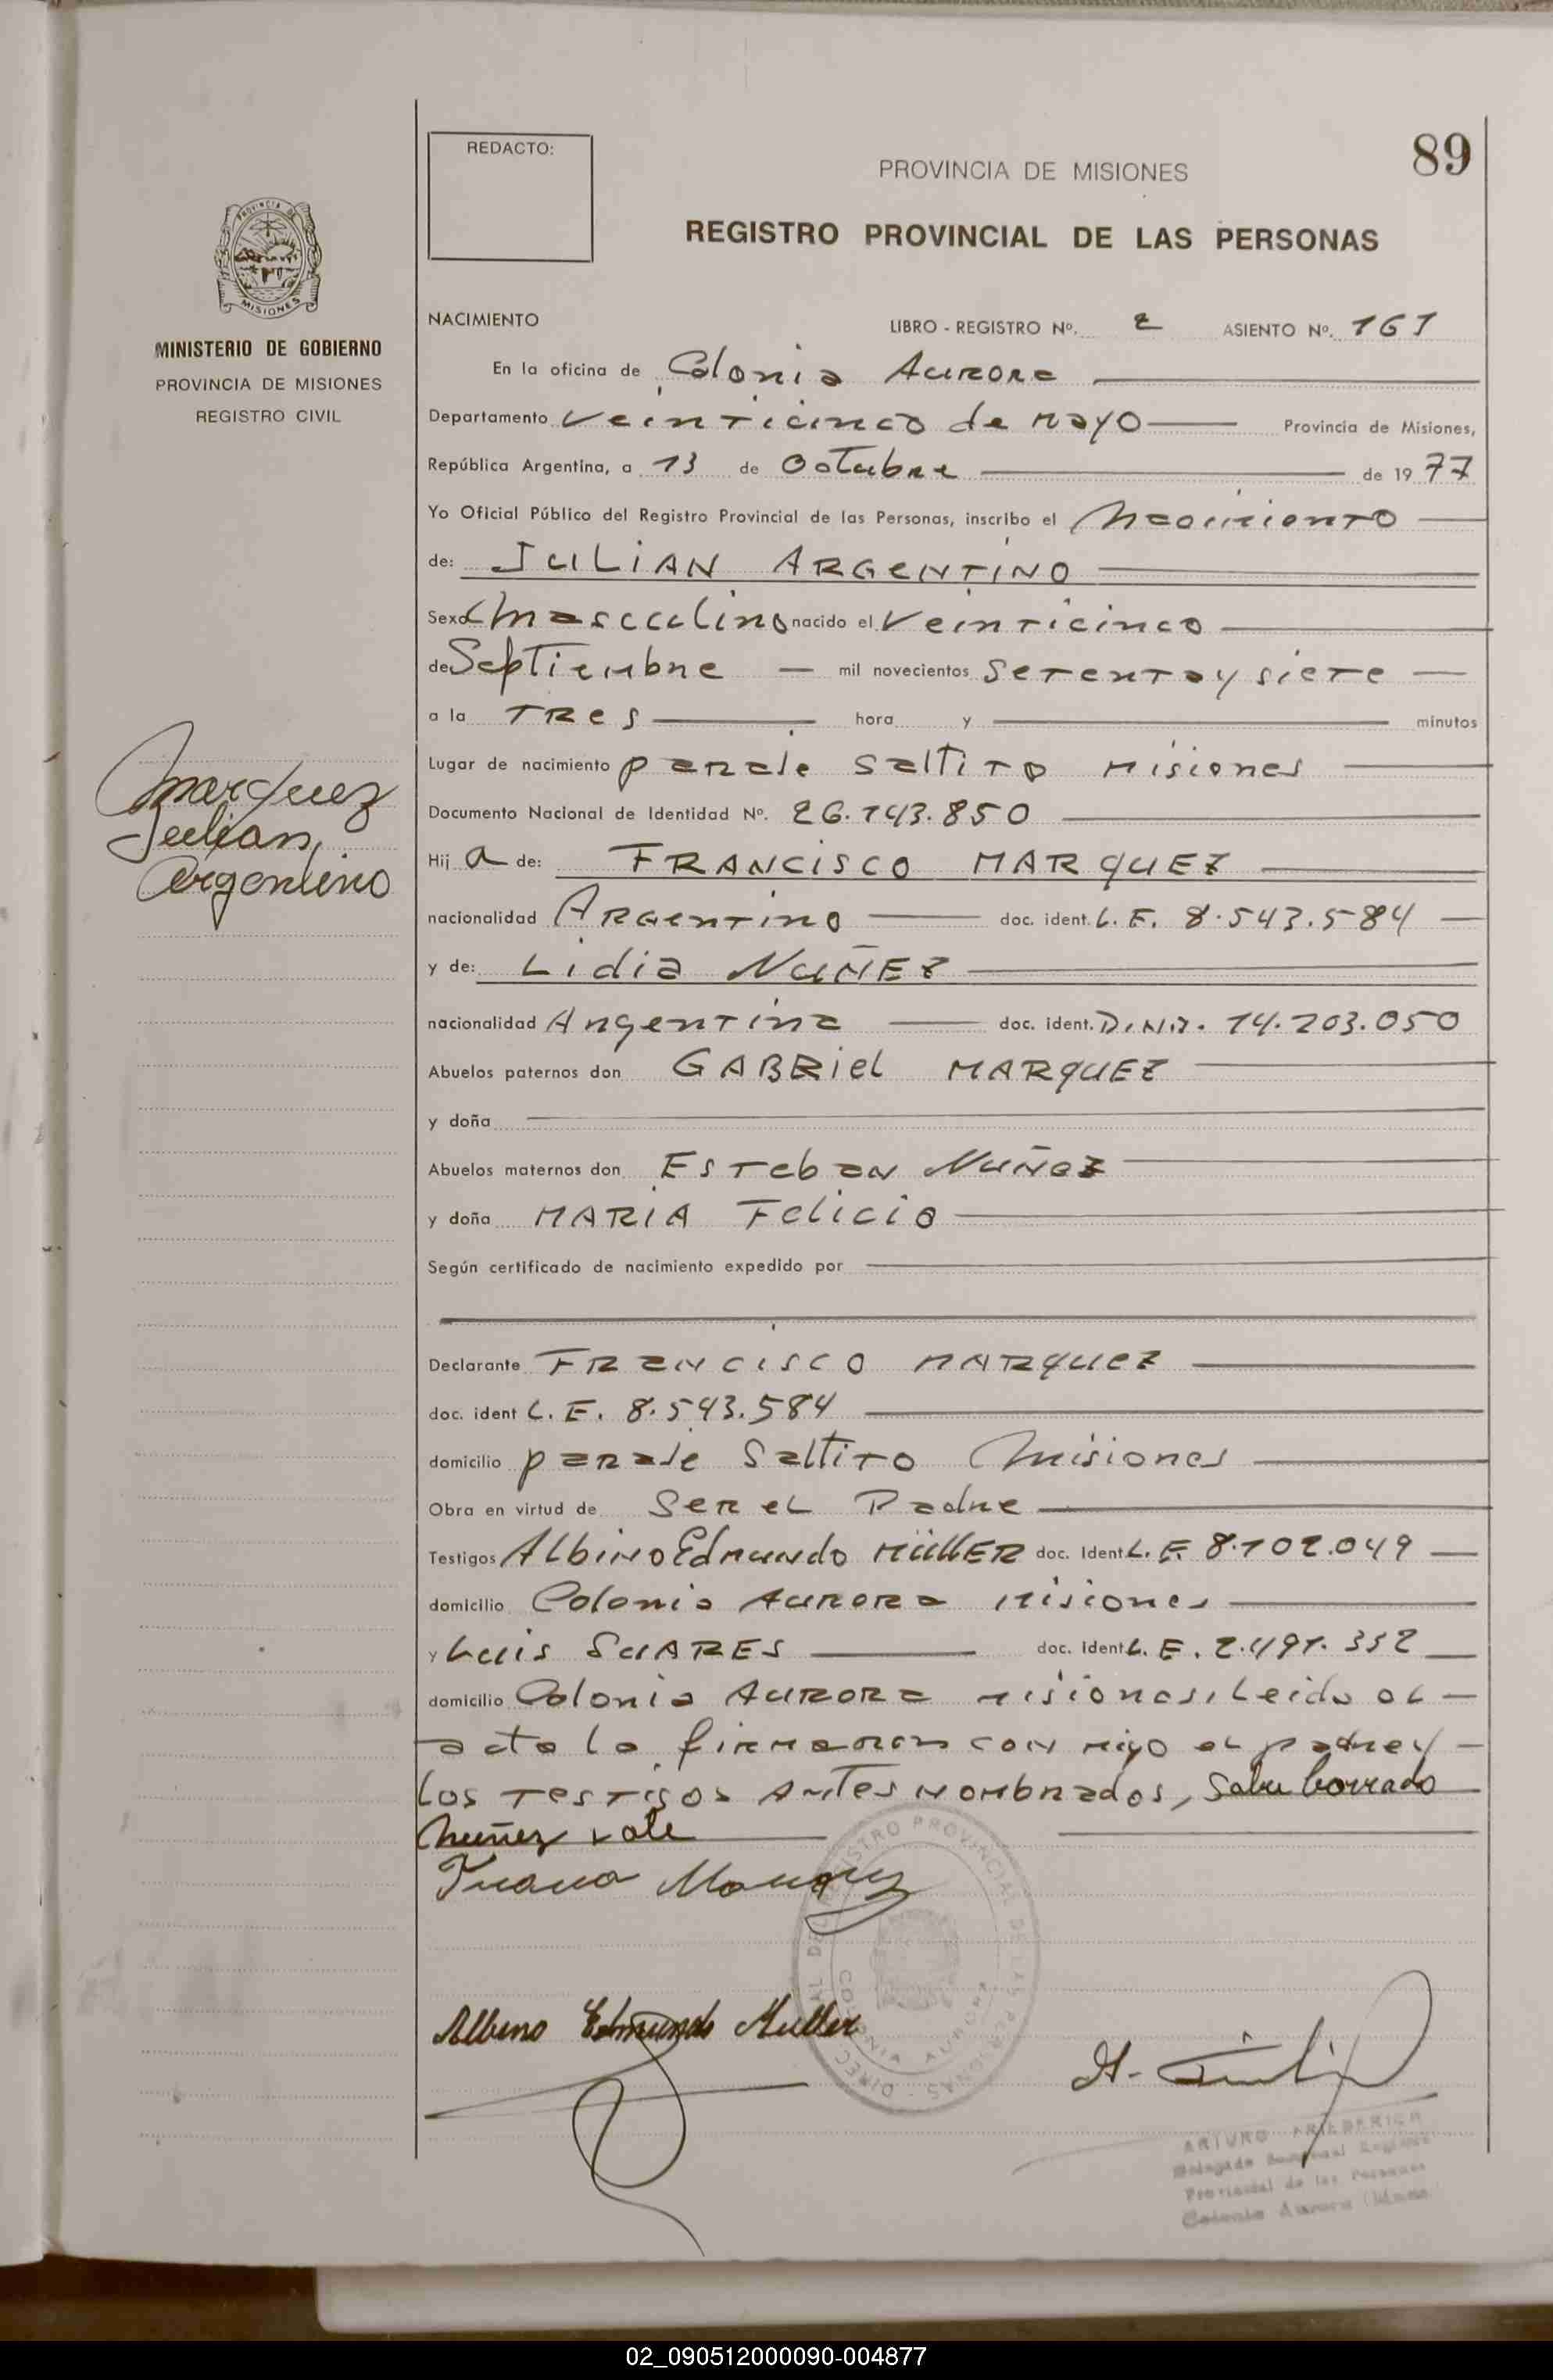 89
REDACTO:
PROVINCIA DE MISIONES
REGISTRO PROVINCIAL DE LAS PERSONAS
PROVINCIA DE
MISIONES
MINISTERIO DE GOBIERNO
PROVINCIA DE MISIONES
REGISTRO CIVIL
Marquez
Julian,
Argentino
NACIMIENTO LIBRO - REGISTRO Nº. 2 ASIENTO Nº. 161
En la oficina de Colonia Aurora
Departamento Veinticinco de mayo Provincia de Misiones,
República Argentina, a 13 de Octubre de 1977
Yo Oficial Público del Registro Provincial de las Personas, inscribo el Nacimiento
de: JULIAN ARGENTINO
Sexo Masculino nacido el Veinticinco
de Septiembre mil novecientos Setenta y siete
a la Tres hora y minutos
Lugar de nacimiento paraje Saltito Misiones
Documento Nacional de Identidad Nº. 26.143.850
Hij a de: FRANCISCO MARQUEZ
nacionalidad Argentino doc. ident. L. E. 8.543.584
y de: Lidia NUÑEZ
nacionalidad Argentina doc. ident. D.N.I. 14.203.050
Abuelos paternos don GABRIEL MARQUEZ
y doña
Abuelos maternos don Esteban Nuñez
y doña MARIA Felicia
Según certificado de nacimiento expedido por
Declarante FRANCISCO MARQUEZ
doc. ident L. E. 8.543.584
domicilio paraje Saltito Misiones
Obra en virtud de Ser el Padre
Testigos Albino Edmundo MÜLLER doc. Ident L. E. 8.102.049
domicilio Colonia Aurora Misiones
y Luis SUARES doc. Ident L. E. 2.491.352
domicilio Colonia Aurora Misiones, Leida el
acta la firmaron con migo el padre y
los testigos antes nombrados, Sobre borrado
Nuñez vale
Albino Edmundo Muller
COLONIA AURORA
ARTURO FRIEDERICH
Delegado Seccional Registro
Provincial de las Personas
Colonia Aurora (Mnes.
02_090512000090-004877